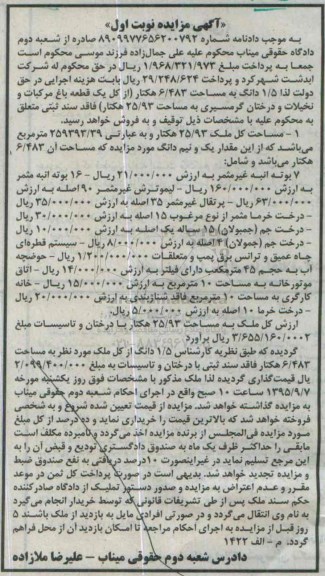 «آگهی مزایده نوبت اول»
به موجب دادنامه شماره ۸۹۰۹۹۷۷۶۵۶۲۰۰۷۹۲ صادره از شعبه دوم
دادگاه حقوقی میناب محکوم علیه علی جمال‌زاده فرزند موسی محکوم است
جمعا به پرداخت مبلغ ۱/۹۶۸/۳۲۱/۹۷۳ ریال در حق محکوم له شرکت
ابدشت شهرکرد و پرداخت ۲۹/۲۴۸/۶۲۴ ریال بابت هزینه اجرایی در حق
دولت لذا ۱/۵ دانگ به مساحت ۶/۴۸۳ هکتار (از کل یک قطعه باغ مرکبات و
نخیلات و درختان گرمسیری به مساحت ۲۵/۹۳ هکتار) فاقد سند ثبتی متعلق
به محکوم علیه با مشخصات ذیل توقیف و به فروش خواهد رسید.
۱ – مساحت کل ملک ۲۵/۹۳ هکتار و به عبارتی ۲۵۹۳۳۳/۳۹ مترمربع
می‌باشد که از این مقدار یک و نیم دانگ مورد مزایده که مساحت آن ۶/۴۸۳
هکتار می‌باشد و شامل:
۷ بوته انبه غیرمثمر به ارزش ۲۱/۰۰۰/۰۰۰ ریال – ۱۶ بوته انبه مثمر
به ارزش ۱۶۰/۰۰۰/۰۰۰ ریال – لیموترش غیرمثمر ۹۰ اصله به ارزش
۶۳/۰۰۰/۰۰۰ ریال – پرتقال غیرمثمر ۳۵ اصله به ارزش ۳۵/۰۰۰/۰۰۰ ریال
– درخت خرما مثمر از نوع مرغوب ۱۵ اصله به ارزش ۳۰/۰۰۰/۰۰۰ ریال
– درخت جم (جمبولان) ۱۵ ساله یک اصله به ارزش ۱۰/۰۰۰/۰۰۰ ریال
– درخت جم (جمولان) ۴ اصله به ارزش ۸/۰۰۰/۰۰۰ ریال – سیستم قطره‌ای
چاه عمیق و ترانس برق پمپ و متعلقات ۱/۲۰۰/۰۰۰/۰۰۰ ریال – حوضچه
آب به حجم ۴۵ مترمکعب دارای فیلتر به ارزش ۱۴/۰۰۰/۰۰۰ ریال – اتاق
موتورخانه به مساحت ۱۰ مترمربع به ارزش ۱۵/۰۰۰/۰۰۰ ریال – خانه
کارگری به مساحت ۱۰ مترمربع فاقد شناژبندی به ارزش ۲۰/۰۰۰/۰۰۰ ریال
– درخت خرما ۱۰ اصله به ارزش ۵/۰۰۰/۰۰۰ ریال.
ارزش کل ملک به مساحت ۲۵/۹۳ هکتار با درختان و تاسیسات مبلغ
۳/۶۵۵/۱۶۰/۰۰۲ ریال برآورد
گردیده که طبق نظریه کارشناس ۱/۵ دانگ از کل ملک مورد نظر به مساحت
۶/۴۸۳ هکتار فاقد سند ثبتی با درختان و تاسیسات به مبلغ ۲/۰۹۹/۴۰۰/۰۰۰
ریال قیمت‌گذاری گردیده لذا ملک مذکور با مشخصات فوق روز یکشنبه مورخه
۱۳۹۵/۹/۷ ساعت ۱۰ صبح واقع در اجرای احکام شعبه دوم حقوقی میناب
به مزایده گذاشته خواهد شد. مزایده از قیمت تعیین شده شروع و به شخصی
فروخته خواهد شد که بالاترین قیمت را خریداری نماید و ده درصد از کل مبلغ
مورد مزایده فی‌المجلس از برنده مزایده اخذ می‌گردد و نامبرده مکلف است
مابقی را حداکثر ظرف یک ماه به صندوق دادگستری تودیع و قبض آن را به
این مرجع تسلیم نماید در غیراینصورت ۱۰درصد دریافتی به نفع صندوق ضبط
و مزایده تجدید خواهد شد. بدیهی است در صورت پرداخت کل ثمن در موعد
مقرر و عدم اعتراض به مزایده و صدور دستور تملیک از دادگاه صادرکننده
حکم سند ملک پس از طی تشریفات قانونی که توسط خریدار انجام می‌گیرد
به نام وی انتقال می‌گردد و در صورتی افرادی مایل به بازدید از ملک باشند ۵
روز قبل از مزایده به اجرای احکام مراجعه تا امکان بازدید آن از محل فراهم
گردد. م – الف ۱۴۲۲
دادرس شعبه دوم حقوقی میناب – علیرضا ملازاده